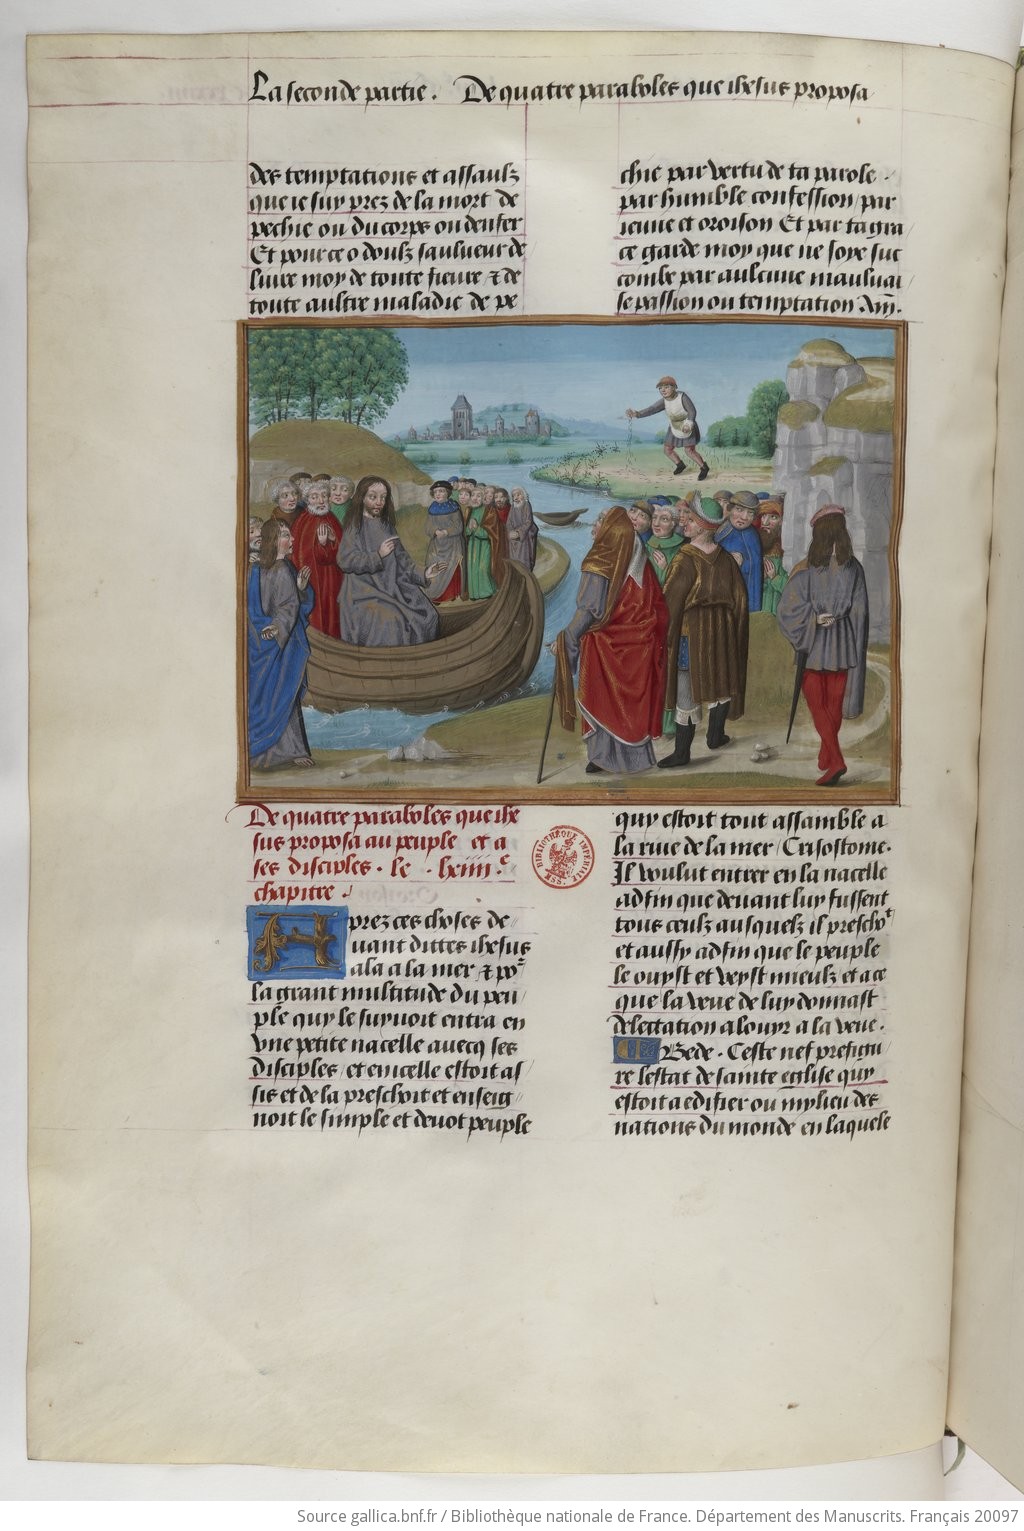 La seconde partie. De quatre paraboles que ihesus proposa
des temptations et assaulz
que ie suy prez de la mort de
pechie ou du corps ou denfer
Et pour ce o doulz saulueur de
liure moy de toute fieure & de
toute aultre maladie de pe
chie par vertu de ta parole
par humble confession par
ieune et oroison Et par ta gra
ce garde moy que ne soye suc
combe par aulcune mauluai
se passion ou temptation Am̄.
De quatre paraboles que ihe
sus proposa au peuple et a
ses disciples. le .lxiiii.e
chapitre.
Aprez ces choses de
uant dittes ihesus
ala a la mer & por
la grant multitude du peu
ple quy le suyuoit entra en
vne petite nacelle auecq ses
disciples et en icelle estoit as
sis et de la preschoit et enseig
noit le simple et deuot peuple
quy estoit tout assamble a
la riue de la mer Crisostome.
Il voulut entrer en la nacelle
adfin que deuant luy fussent
tous ceulz ausquelz il preschot
et aussy adfin que le peuple
le ouyst et veyst mieulz et a ce
que la veue de luy donnast
delectation a louyr a la veue.
Bede. Ceste nef prefigu
re lestat de sainte eglise quy
estoit a edifier ou mylieu des
nations du monde en laquele
BIBLIOTHÈQUE IMPÉRIALE
MSS.
Source gallica.bnf.fr / Bibliothèque nationale de France. Département des Manuscrits. Français 20097